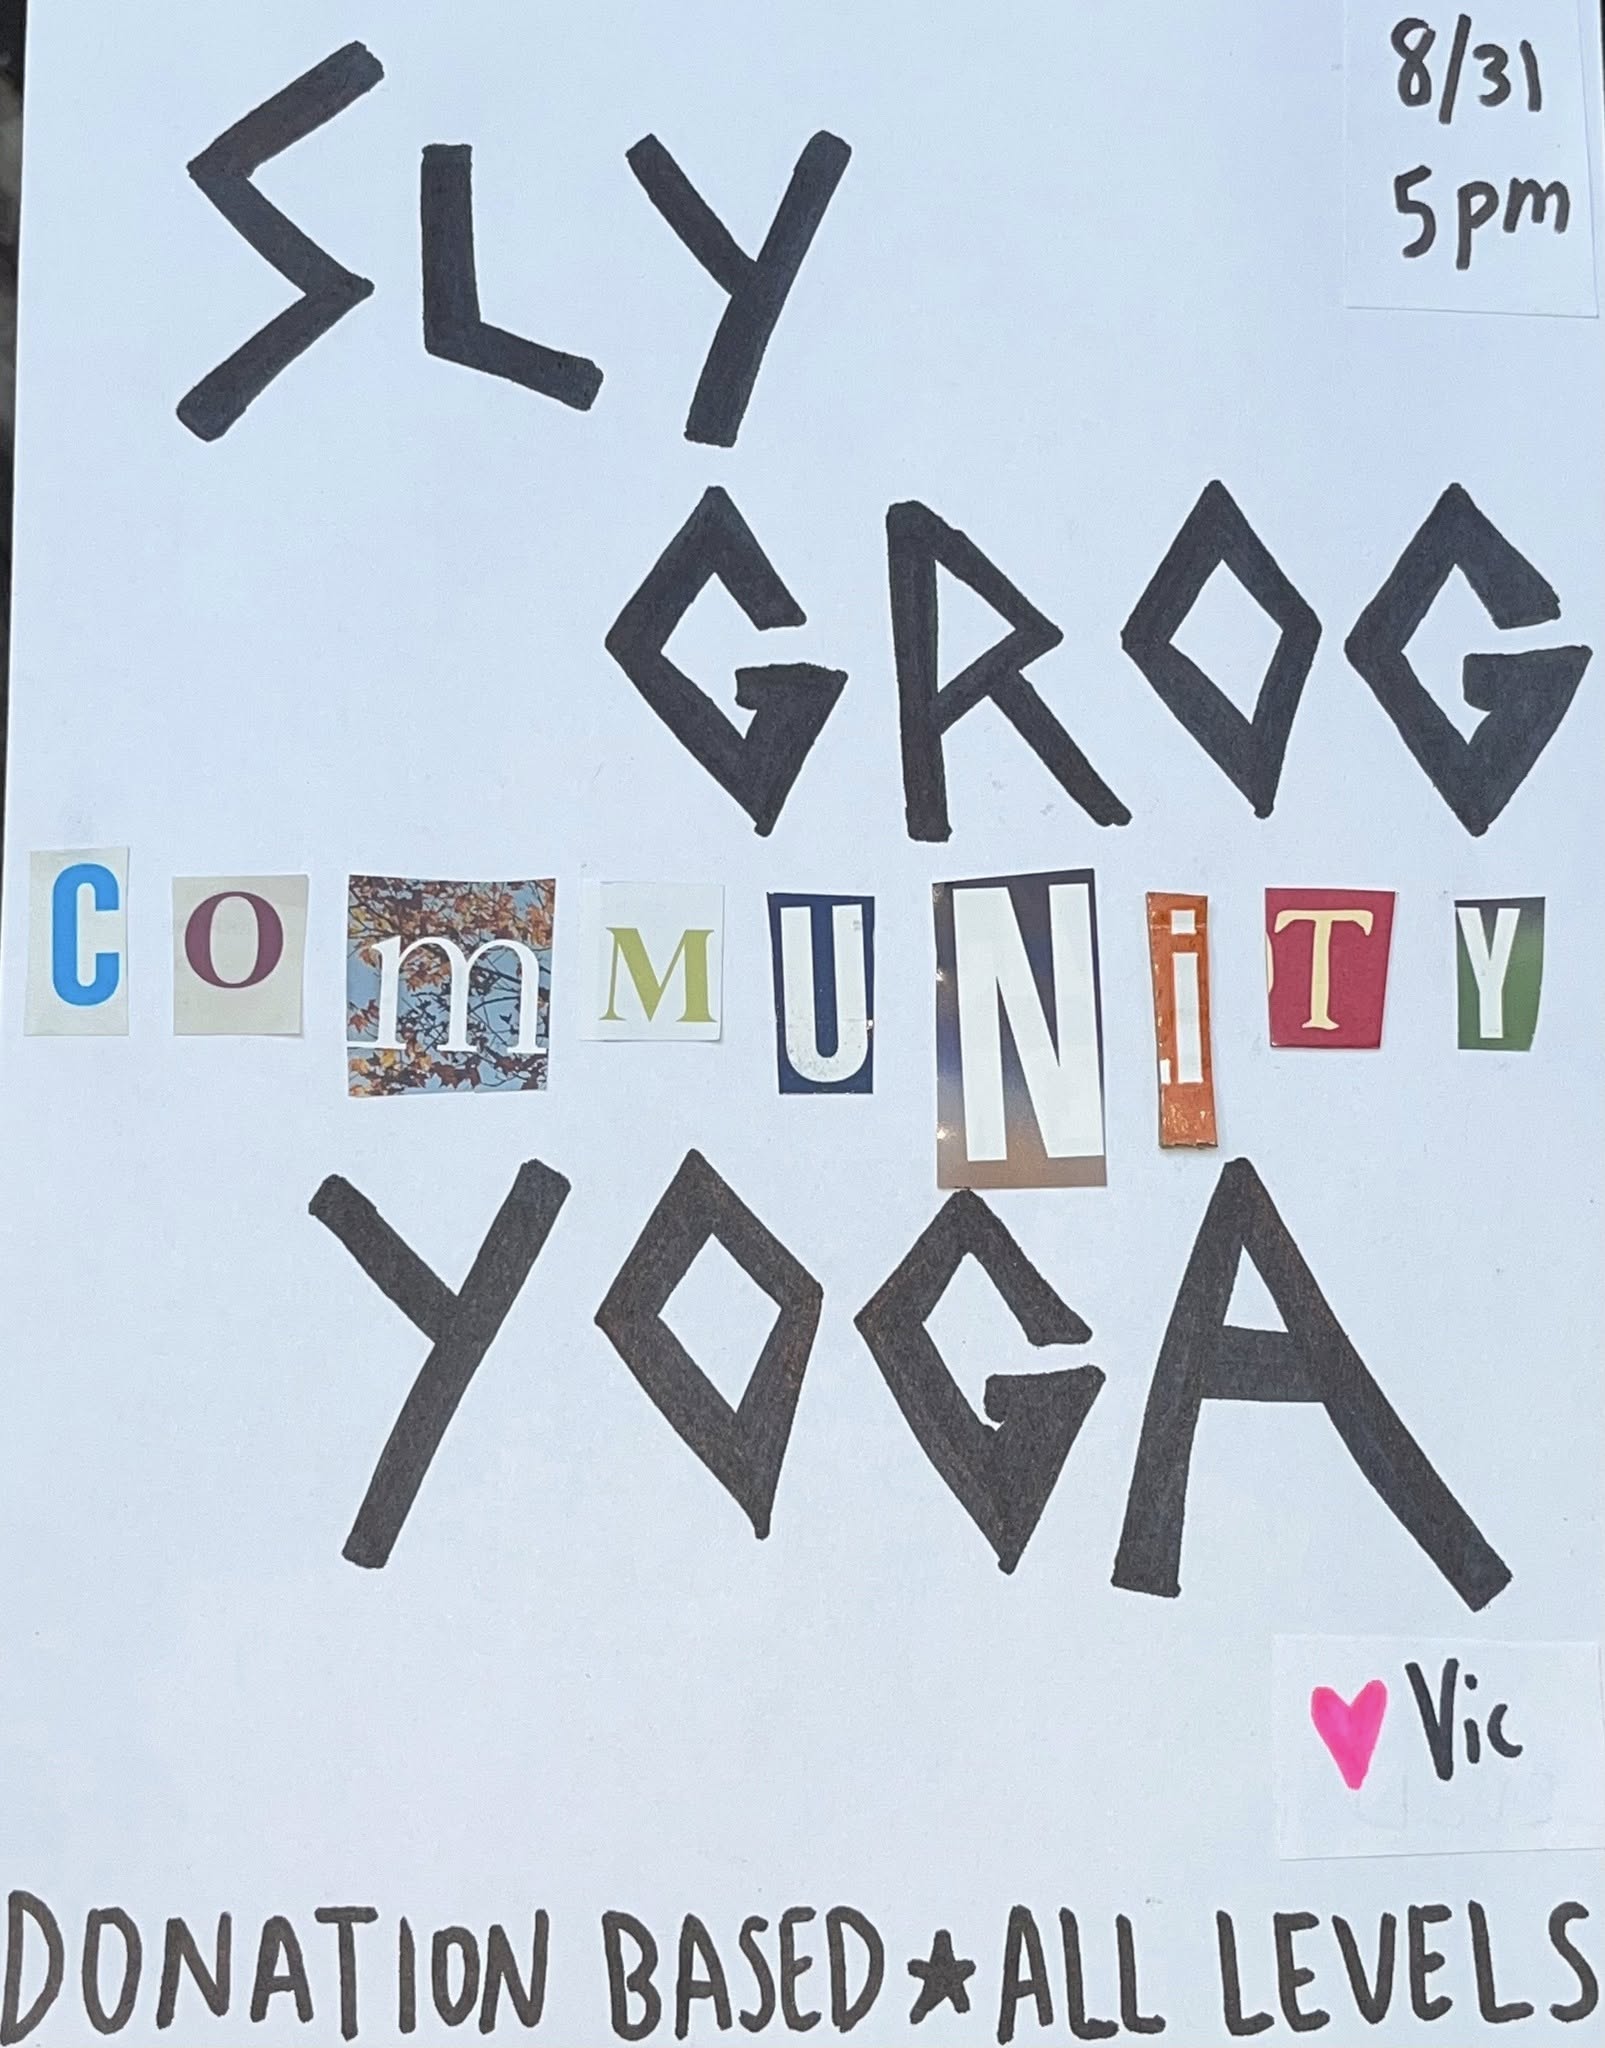 8/31
5pm
SLY
GROG
COmMUNiTY
YOGA
Vic
DONATION BASED ★ ALL LEVELS